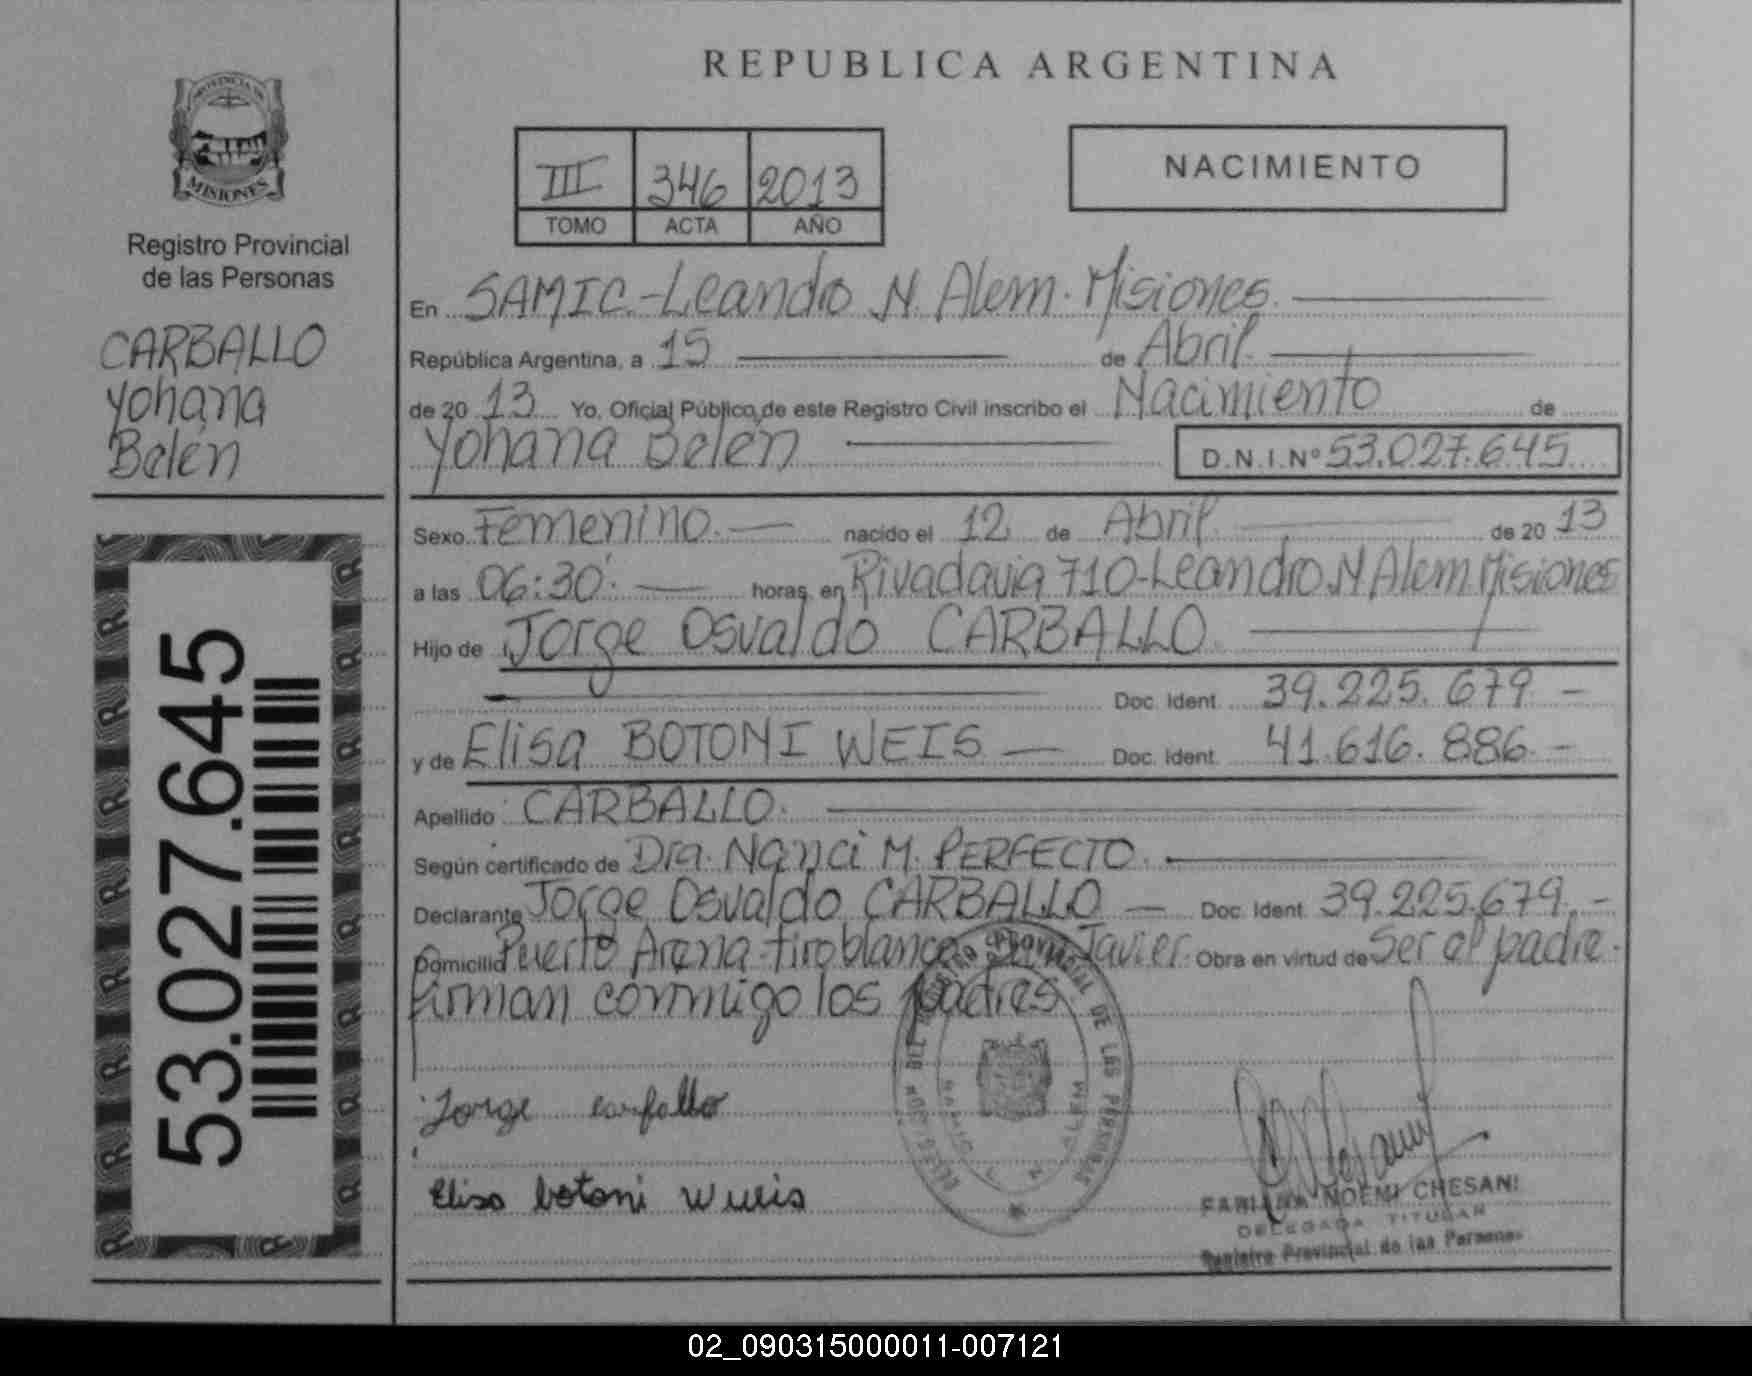 PROVINCIA DE
MISIONES
Registro Provincial
de las Personas
CARBALLO
Yohana
Belén
53.027.645
REPUBLICA ARGENTINA
III 346 2013
TOMO ACTA AÑO
NACIMIENTO
En SAMIC.-Leandro N. Alem. Misiones.
República Argentina, a 15 de Abril.
de 20 13 Yo, Oficial Público de este Registro Civil inscribo el Nacimiento de
Yohana Belén D.N.I.Nº 53.027.645
Sexo Femenino. nacido el 12 de Abril. de 20 13
a las 06:30'. horas, en Rivadavia 710-Leandro N Alem. Misiones
Hijo de Jorge Osvaldo CARBALLO.
Doc. Ident. 39.225.679.-
y de Elisa BOTONI WEIS Doc. Ident. 41.616.886.-
Apellido CARBALLO.
Según certificado de Dra. Nanci M. PERFECTO.
Declarante Jorge Osvaldo CARBALLO Doc. Ident. 39.225.679.-
Domicilio Puerto Arena-tiro blanco Javier. Obra en virtud de Ser el padre.
firman conmigo los padres
Jorge carballo
DEL REGISTRO PROVINCIAL DE LAS PERSONAS
SAMIC L N ALEM
Elisa botoni
FABIANA NOEMI CHESANI
DELEGADA TITULAR
Registro Provincial de las Personas
02_090315000011-007121